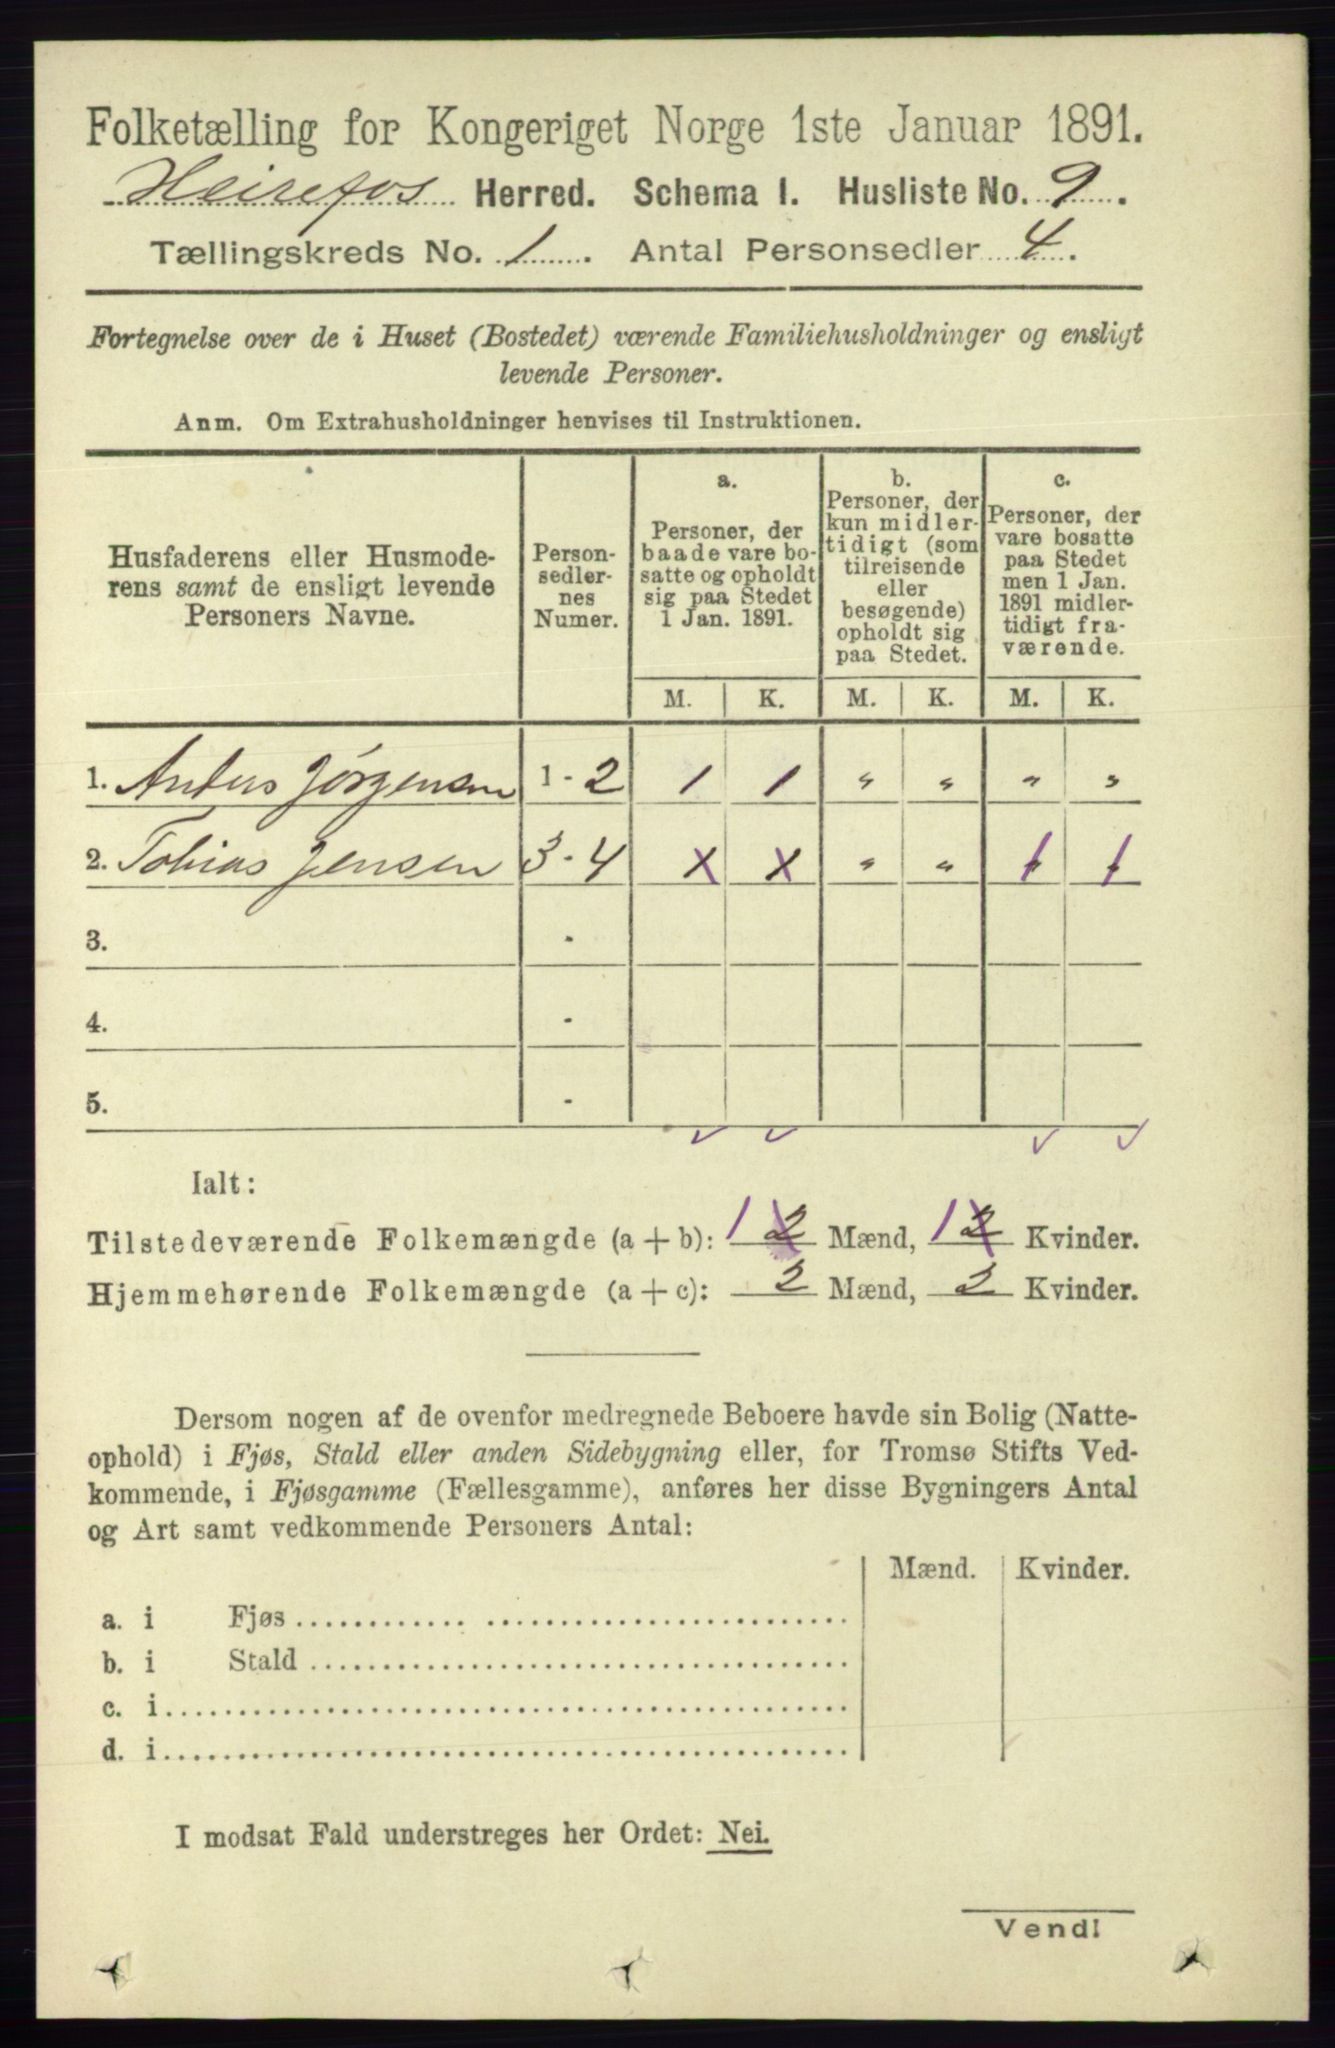 Folketælling for Kongeriget Norge 1ste Januar 1891.
Heirefos Herred. Schema I. Husliste No. 9.
Tællingskreds No. 1. Antal Personsedler 4.
Fortegnelse over de i Huset (Bostedet) værende Familiehusholdninger og ensligt
levende Personer.
Anm. Om Extrahusholdninger henvises til Instruktionen.
Husfaderens eller Husmode-
rens samt de ensligt levende
Personers Navne.
Person-
sedler-
nes
Numer.
a.
Personer, der
baade vare bo-
satte og opholdt
sig paa Stedet
1 Jan. 1891.
b.
Personer, der
kun midler-
tidigt (som
tilreisende
eller
besøgende)
opholdt sig
paa Stedet.
c.
Personer, der
vare bosatte
paa Stedet
men 1 Jan.
1891 midler-
tidigt fra-
værende.
M. K. M. K. M. K.
1. Anders Jörgensen 1 - 2 1 1 " " " "
2. Tobias Jensen 3 - 4 X X " " 1 1
3. -
4. -
5. -
Ialt:
Tilstedeværende Folkemængde (a + b): 1 2 Mænd, 1 2 Kvinder.
Hjemmehørende Folkemængde (a + c): 2 Mænd, 2 Kvinder.
Dersom nogen af de ovenfor medregnede Beboere havde sin Bolig (Natte-
ophold) i Fjøs, Stald eller anden Sidebygning eller, for Tromsø Stifts Ved-
kommende, i Fjøsgamme (Fællesgamme), anføres her disse Bygningers Antal
og Art samt vedkommende Personers Antal:
Mænd. Kvinder.
a. i Fjøs
b. i Stald
c. i
d. i
I modsat Fald understreges her Ordet: Nei.
Vend!